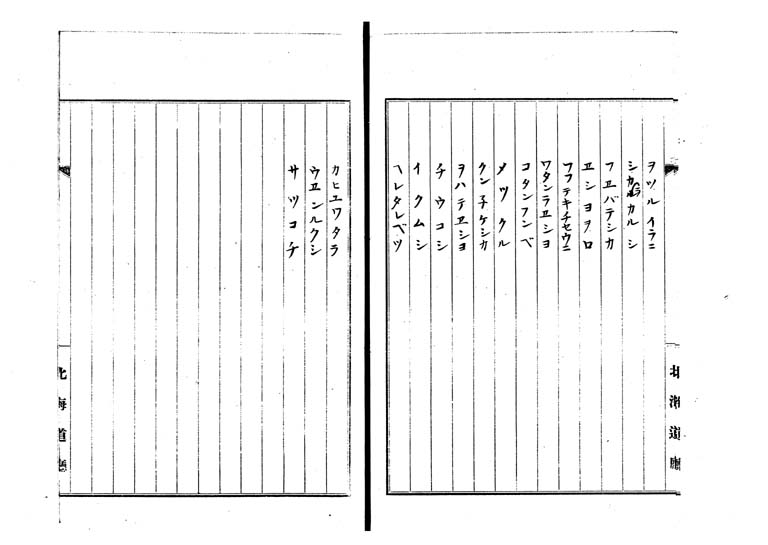 ヲツルイラニ
シカルカルシ
フヱバテシカ
ヱショヲロ
フプテキチセウニ
ワタンラヱショ
コタンフンベ
メツクル
クン子ケシカ
ヲハテヱショ
チウコシ
イクムシ
ヘレタレベツ
北海道廳
カヒユワタラ
ウヱンルクシ
サツコチ
北海道廳